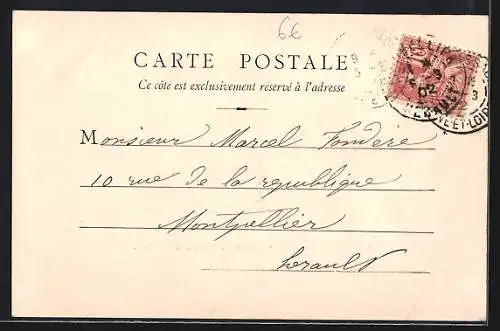 6€
CARTE POSTALE
Ce côté est exclusivement réservé à l'adresse
Monsieur Marcel Fondère
10 rue de la republique
Montpellier
herault
02
ET-LOIRE